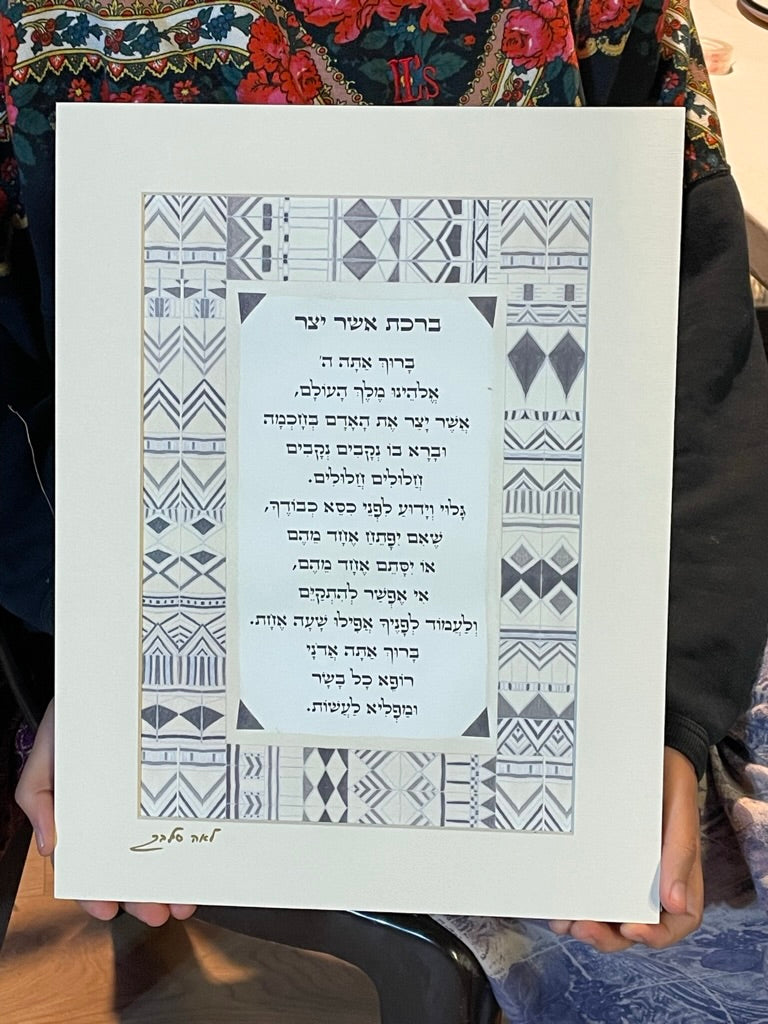 ברכת אשר יצר
בָּרוּךְ אַתָּה ה'
אֱלֹהֵינוּ מֶלֶךְ הָעוֹלָם,
אֲשֶׁר יָצַר אֶת הָאָדָם בְּחָכְמָה
וּבָרָא בוֹ נְקָבִים נְקָבִים
חֲלוּלִים חֲלוּלִים.
גָּלוּי וְיָדוּעַ לִפְנֵי כִסֵּא כְבוֹדֶךָ,
שֶׁאִם יִפָּתֵחַ אֶחָד מֵהֶם
אוֹ יִסָּתֵם אֶחָד מֵהֶם,
אִי אֶפְשַׁר לְהִתְקַיֵּם
וְלַעֲמוֹד לְפָנֶיךָ אֲפִילוּ שָׁעָה אֶחָת.
בָּרוּךְ אַתָּה אֲדֹנָי
רוֹפֵא כָל בָּשָׂר
וּמַפְלִיא לַעֲשׂוֹת.
לאה